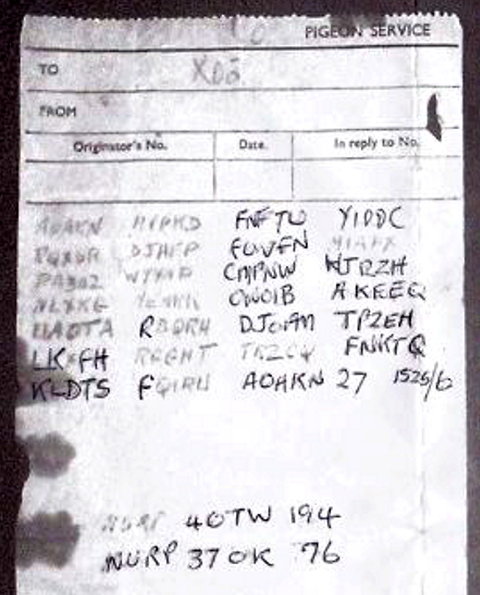 PIGEON SERVICE
TO X02
FROM
Originator's No. Date. In reply to No.
AOAKN HVPKD FNFJW YIDDC
RQXSR DJHFP GOVFN MIAPX
PABUZ WYYNP CMPNW HJRZH
NLXKG ONOIB AKEEQ
UAOTA RBQRH DJOFM TPZEH
LKXGH RGGHT JRZCQ FNKTQ
KLDTS FQIRU AOAKN 27 1525/6
NURP 40TW 194
NURP 37OK 76